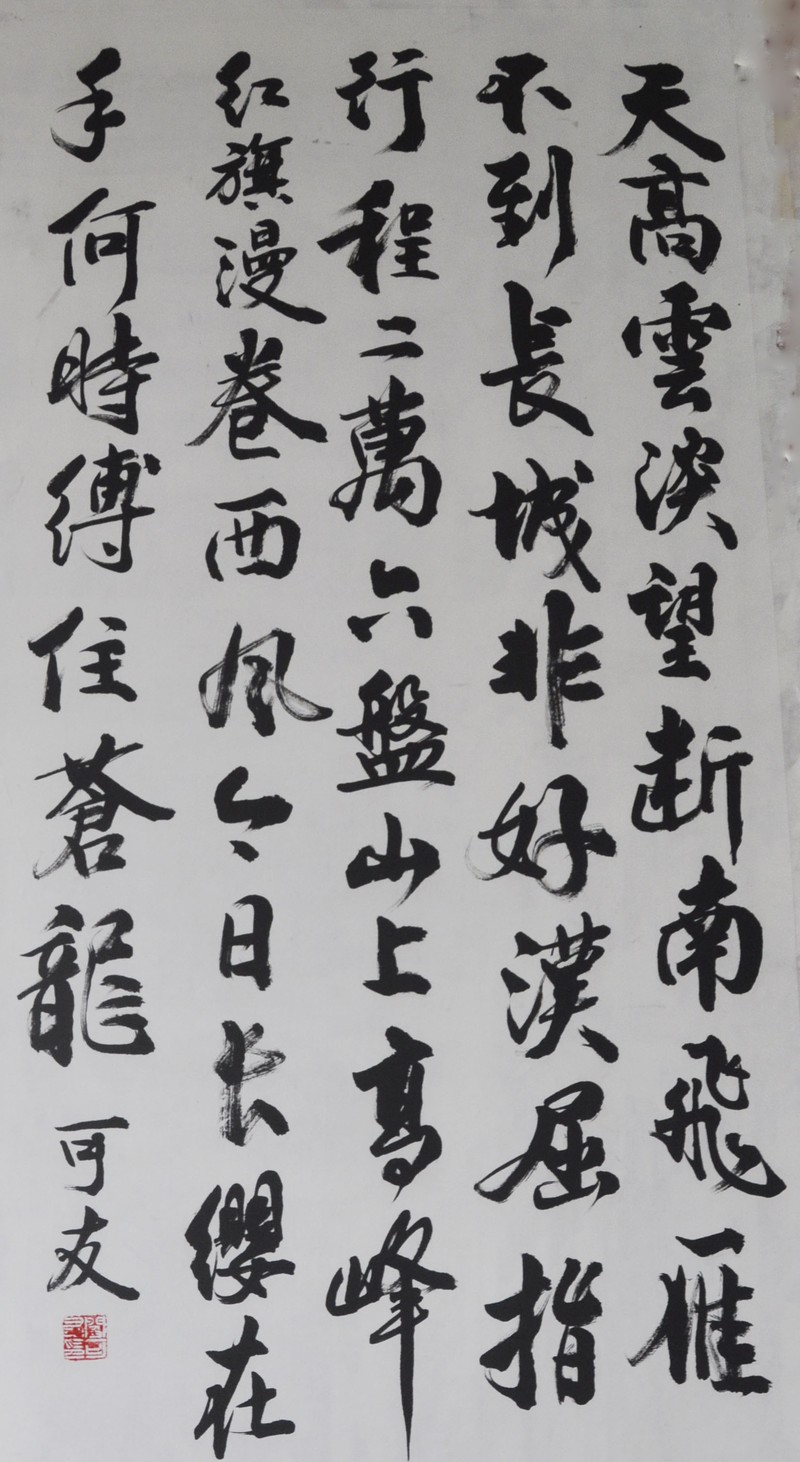 天高雲淡望断南飛雁
不到長城非好漢屈指
行程二萬六盤山上高峰
红旗漫卷西风今日长缨在
手何時缚住蒼龍
可友